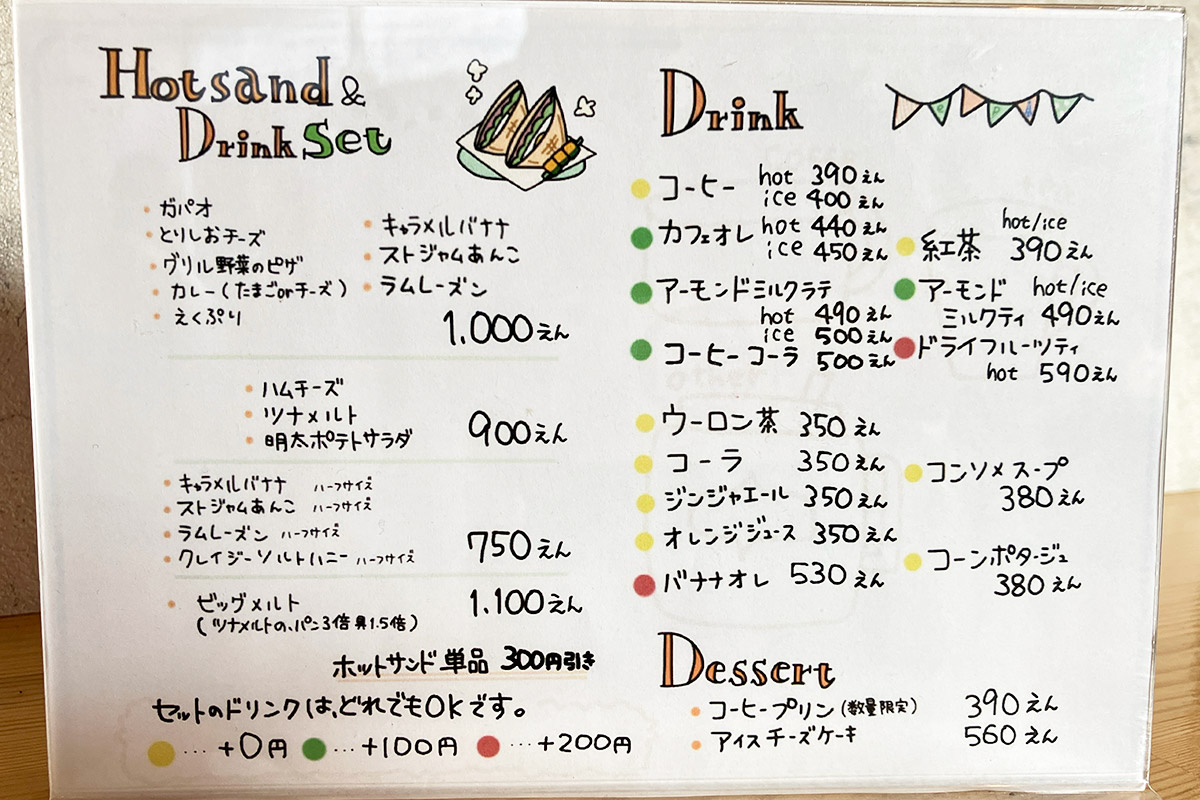 Hotsand &
Drink Set
・ガパオ
・とりしおチーズ
・グリル野菜のピザ
・カレー(たまごorチーズ)
・えくぷり
・キャラメルバナナ
・ストジャムあんこ
・ラムレーズン
1.000えん
・ハムチーズ
・ツナメルト
・明太ポテトサラダ
900えん
・キャラメルバナナ ハーフサイズ
・ストジャムあんこ ハーフサイズ
・ラムレーズン ハーフサイズ
・クレイジーソルトハニー ハーフサイズ
750えん
・ビッグメルト 1.100えん
(ツナメルトの、パン3倍具1.5倍)
ホットサンド単品 300円引き
セットのドリンクは、どれでもOKです。
…+0円 …+100円 …+200円
Drink
コーヒー hot 390えん
ice 400えん
カフェオレ hot 440えん
ice 450えん
アーモンドミルクラテ
hot 490えん
ice 500えん
コーヒーコーラ 500えん
hot/ice
紅茶 390えん
アーモンド hot/ice
ミルクティ 490えん
ドライフルーツティ
hot 590えん
ウーロン茶 350えん
コーラ 350えん
ジンジャエール 350えん
オレンジジュース 350えん
バナナオレ 530えん
コンソメスープ
380えん
コーンポタージュ
380えん
Dessert
・コーヒープリン(数量限定) 390えん
・アイスチーズケーキ 560えん